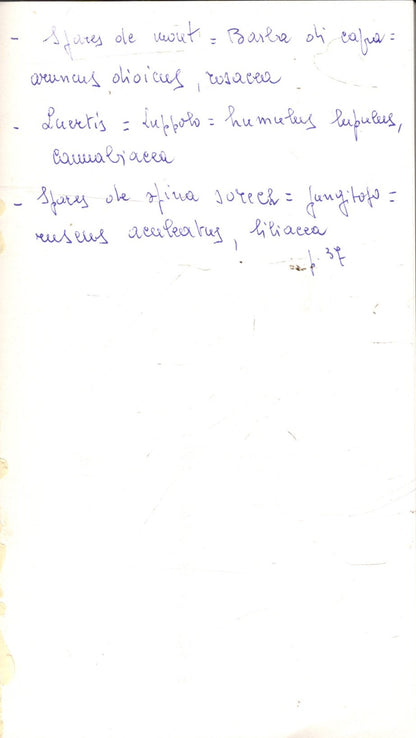 - Spares de mont = Barba di capra =
aruncus dioicus, rosacea
- Luertis = Luppolo = humulus lupulus,
cannabiacea
- Spares de spina sorech = pungitopo =
ruscus aculeatus, liliacea
p. 37